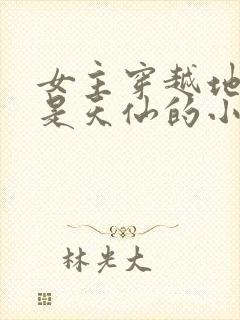 女主穿越地
是天仙的小
林光大